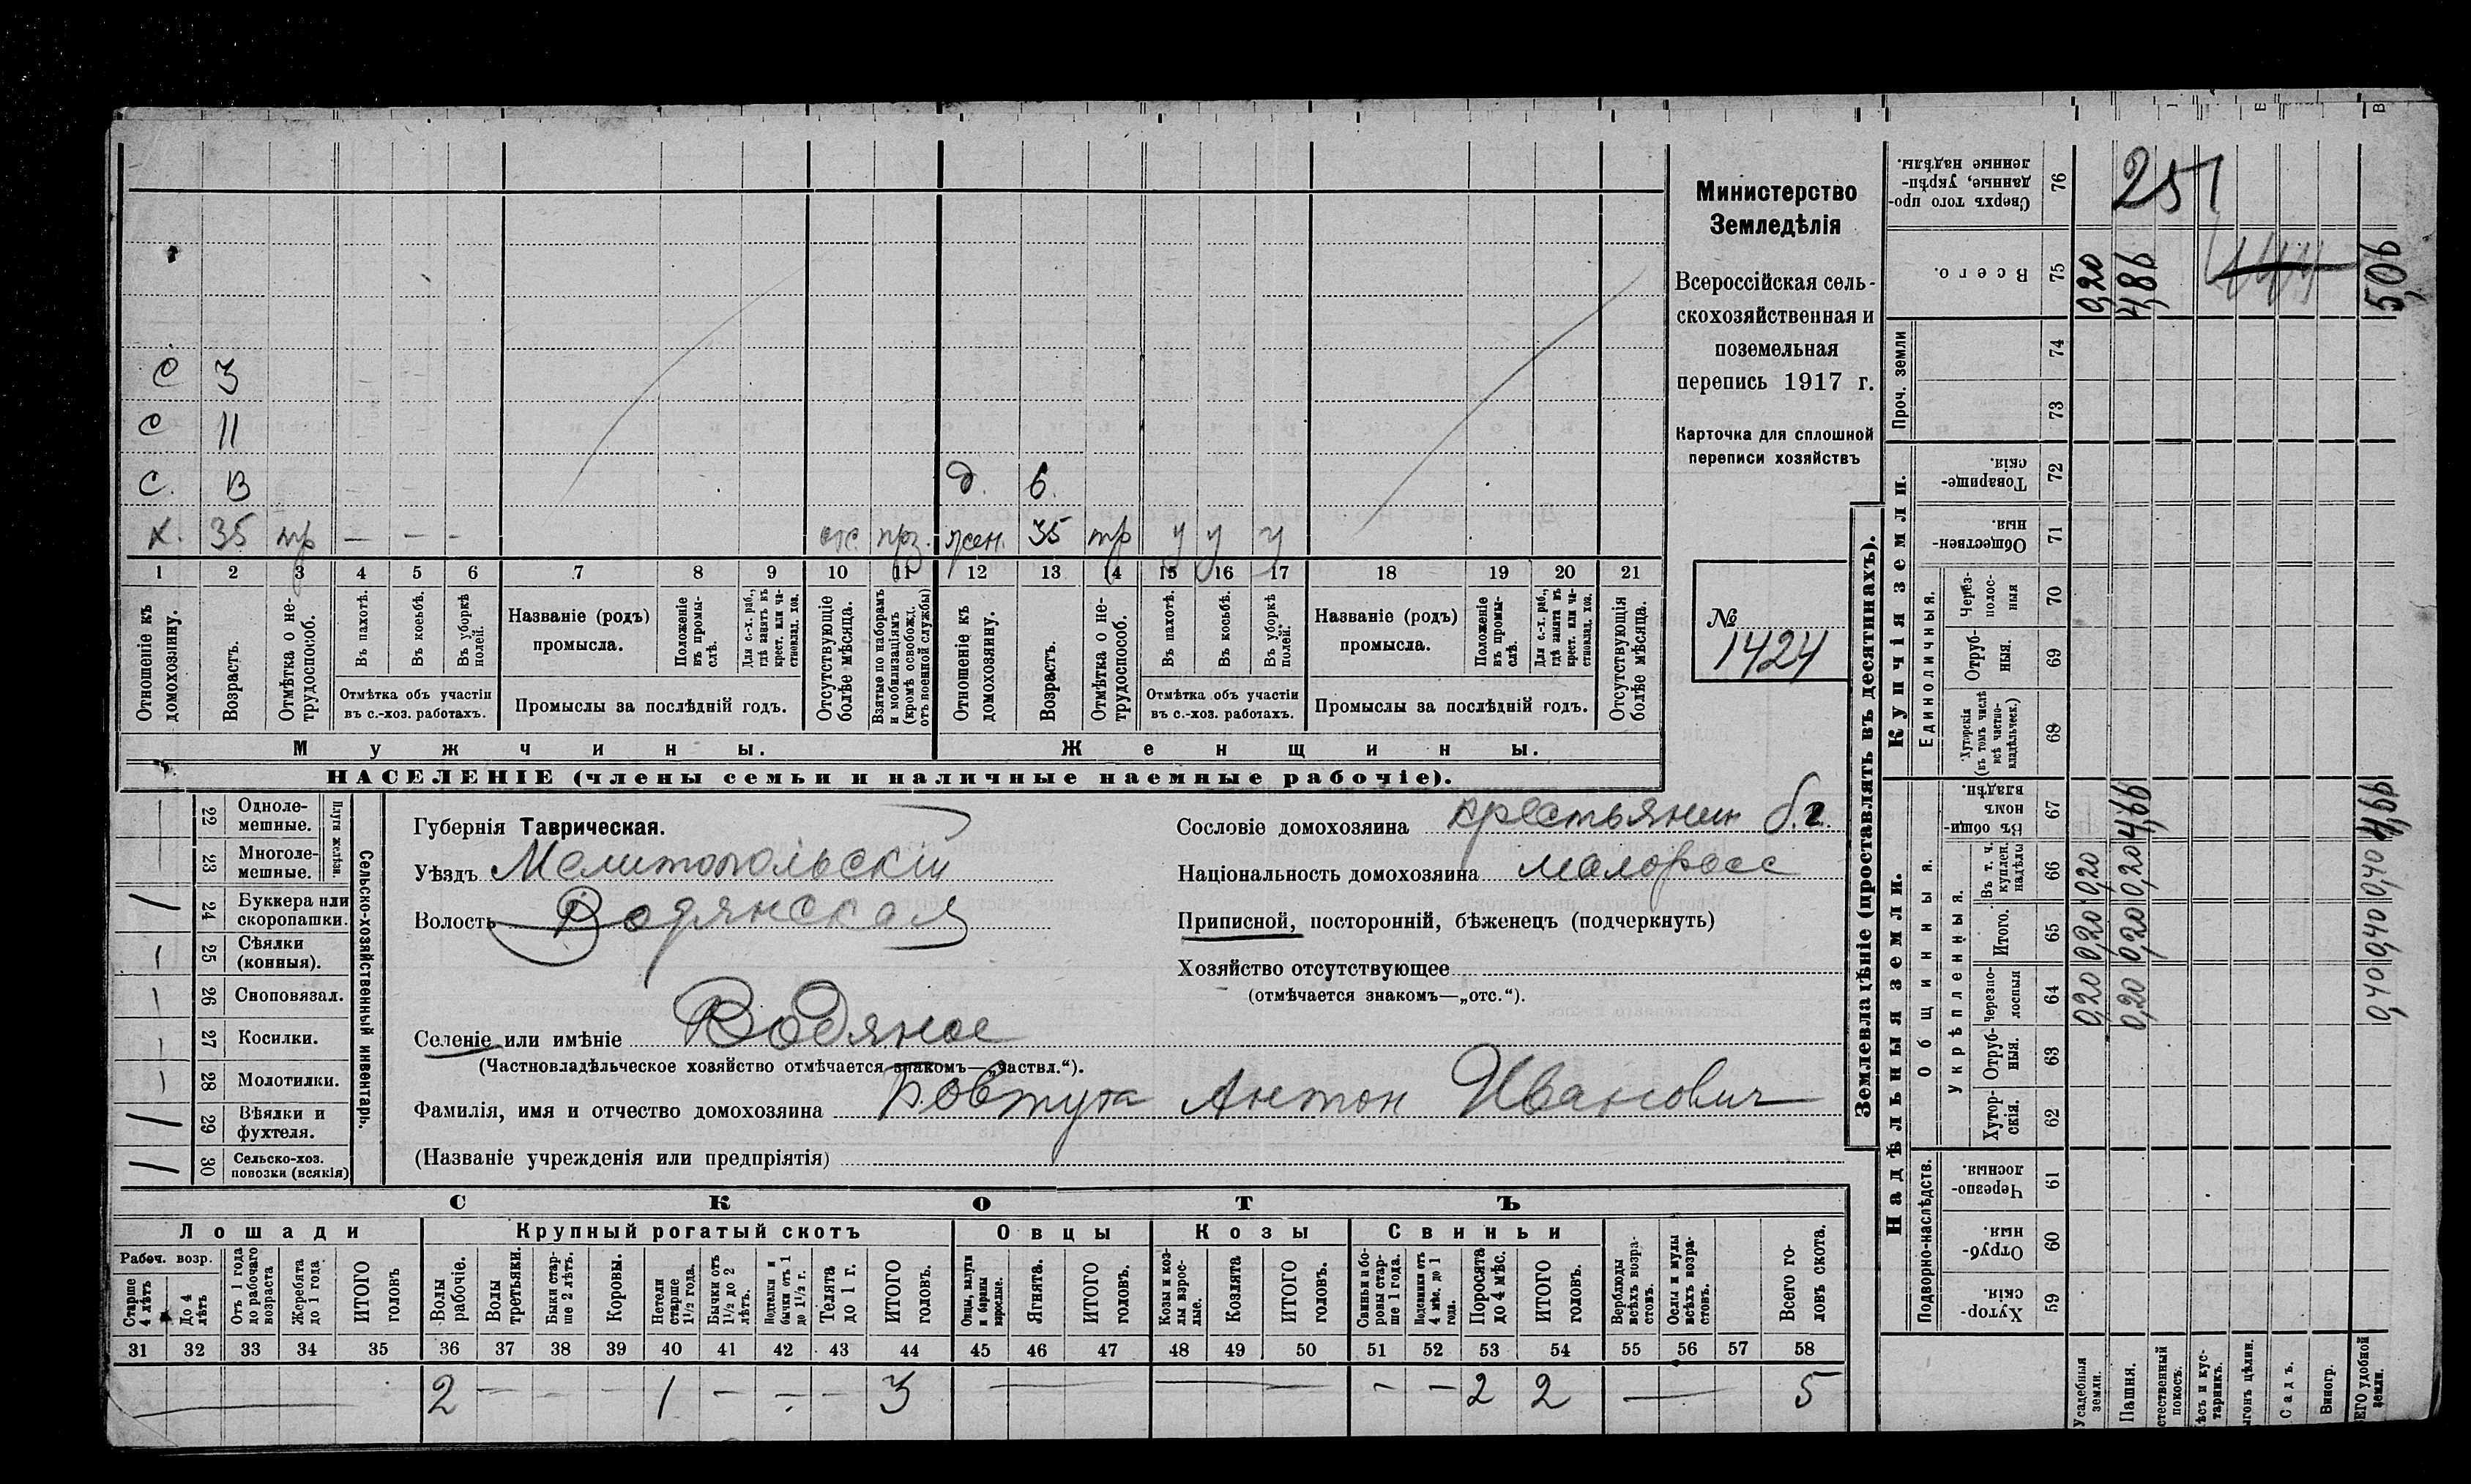 С 3
С 11
С. 13 д. 6.
Х. 35 тр — — — отс. прз. жен. 35 тр у у у
1 2 3 4 5 6 7 8 9 10 11 12 13 14 15 16 17 18 19 20 21
Отношеніе къ домохозяину.
Возрастъ.
Отмѣтка о нетрудоспособ.
Въ пахотѣ.
Въ косьбѣ.
Въ уборкѣ полей.
Отмѣтка объ участіи
въ с.-хоз. работахъ.
Названіе (родъ)
промысла.
Положеніе въ промыслѣ.
Для с.-х. раб., гдѣ занятъ въ крест. или частновлад. хоз.
Промыслы за послѣдній годъ.
Отсутствующіе болѣе мѣсяца.
Взятые по наборамъ и мобилизаціямъ (кромѣ освобожд. отъ военной службы)
Отношеніе къ домохозяину.
Возрастъ.
Отмѣтка о нетрудоспособ.
Въ пахотѣ.
Въ косьбѣ.
Въ уборкѣ полей.
Отмѣтка объ участіи
въ с.-хоз. работахъ.
Названіе (родъ)
промысла.
Положеніе въ промыслѣ.
Для с.-х. раб., гдѣ занятъ въ крест. или частновлад. хоз.
Промыслы за послѣдній годъ.
Отсутствующія болѣе мѣсяца.
Мужчины. Женщины.
НАСЕЛЕНІЕ (члены семьи и наличные наемные рабочіе).
Министерство
Земледѣлія
Всероссійская сель-
скохозяйственная и
поземельная
перепись 1917 г.
Карточка для сплошной
переписи хозяйствъ
№
1424
Сельско-хозяйственный инвентарь.
Плуги желѣзн.
— 22 Однолемешные.
— 23 Многолемешные.
/ 24 Буккера или скоропашки.
— 25 Сѣялки (конныя).
— 26 Сноповязал.
— 27 Косилки.
— 28 Молотилки.
/ 29 Вѣялки и фухтеля.
/ 30 Сельско-хоз. повозки (всякія)
Губернія Таврическая.
Уѣздъ Мелитопольскій
Волость Водянская
Селеніе или имѣніе Водяное
(Частновладѣльческое хозяйство отмѣчается знакомъ—„частвл.“).
Фамилія, имя и отчество домохозяина Бовтута Антон Иванович
(Названіе учрежденія или предпріятія)
Сословіе домохозяина крестьянин б.г.
Національность домохозяина малоросс
Приписной, посторонній, бѣженецъ (подчеркнуть)
Хозяйство отсутствующее
(отмѣчается знакомъ—„отс.“).
СКОТЪ
Лошади Крупный рогатый скотъ Овцы Козы Свиньи
Рабоч. возр.
Старше 4 лѣтъ
До 4 лѣтъ
Отъ 1 года до рабочаго возраста
Жеребята до 1 года
ИТОГО головъ
Волы рабочіе.
Волы третьяки.
Быки старше 2 лѣтъ.
Коровы.
Нетели старше 1½ года.
Бычки отъ 1½ до 2 лѣтъ.
Подтелки и бычки отъ 1 до 1½ г.
Телята до 1 г.
ИТОГО головъ.
Овцы, валухи и бараны взрослые.
Ягнята.
ИТОГО головъ.
Козы и козлы взрослые.
Козлята
ИТОГО головъ.
Свиньи и боровы старше 1 года.
Подсвинки отъ 4 мѣс. до 1 года.
Поросята до 4 мѣс.
ИТОГО головъ.
Верблюды всѣхъ возрастовъ.
Ослы и мулы всѣхъ возрастовъ.
Всего головъ скота.
31 32 33 34 35 36 37 38 39 40 41 42 43 44 45 46 47 48 49 50 51 52 53 54 55 56 57 58
— 2 — — — 1 — — — 3 — — — — 2 2 — 5
Землевладѣніе (проставлять въ десятинахъ).
Сверхъ того проданные, укрѣпленные надѣлы. 76 251
Всего. 75 0,20 4,86 5,06
Купчія земли.
Проч. земли 74
73
Товарищескія. 72
Общественныя. 71
Единоличныя.
Черезполосныя 70
Отрубныя. 69
Хуторскія (въ томъ числѣ всѣ частновладѣльческ.) 68
Надѣльныя земли.
Общинныя.
Въ общинномъ владѣн. 67 4,66 4,66
Укрѣпленныя.
Въ т. ч. куплен. надѣлы 66 0,20 0,20 0,40
Итого. 65 0,20 0,20 0,40
Черезполосныя 64 0,20 0,20 0,40
Отрубныя. 63
Хуторскія. 62
Подворно-наслѣдств.
Черезполосныя. 61
Отрубныя. 60
Хуторскія 59
Усадебныя земли.
Пашня.
стественный покосъ.
ѣсъ и кустарникъ.
ыгонъ цѣлин.
Садъ.
Виногр.
ЕГО удобной земли.